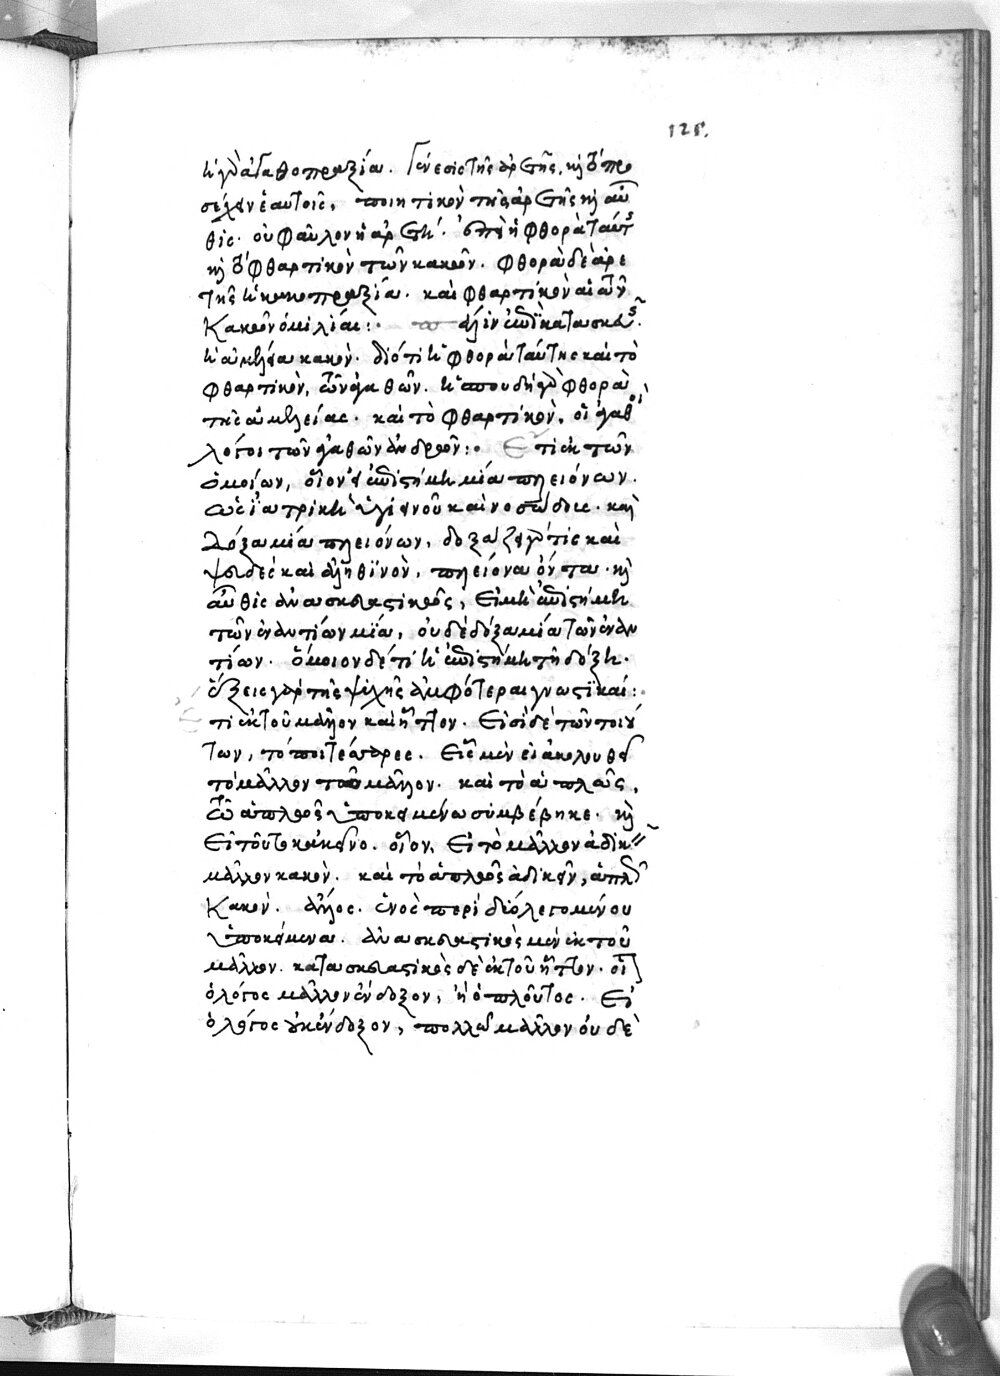 125.
ἡ γὰρ ἀγαθοπραξία. Γένεσις τῆς ἀρετῆς, καὶ τὸ προ
σέχειν ἑαυτοῖς, ποιητικὸν τῆς ἀρετῆς καὶ αὖ
θις. οὐ φαῦλον ἡ ἀρετή. ἐπεὶ ἡ φθορὰ ταύτης
καὶ τὸ φθαρτικὸν τῶν κακῶν. φθορὰ δὲ ἀρε
τῆς ἡ κακοπραξία. καὶ φθαρτικὸν αἱ τῶν
κακῶν ὁμιλίαι: πάλιν ἐπὶ κατασκευῆς.
ἡ ἀμέλεια κακόν. διότι ἡ φθορὰ ταύτης καὶ τὸ
φθαρτικὸν, τῶν ἀγαθῶν. ἡ σπουδὴ γὰρ φθορὰ
τῆς ἀμελείας. καὶ τὸ φθαρτικὸν, οἱ ἀγαθοὶ
λόγοι τῶν ἀγαθῶν ἀνδρῶν: Ἔτι ἐκ τῶν
ὁμοίων, οἷον εἰ ἐπιστήμη μία πλειόνων.
ὡς ἰατρικὴ ὑγιεινοῦ καὶ νοσώδους. καὶ
δόξα μία πλειόνων, δοξάζει γάρ τις καὶ
ψευδὲς καὶ ἀληθινὸν, πλείονα ὄντα. καὶ
αὖθις ἀνασκευαστικῶς, Εἰ μὴ ἐπιστήμη
τῶν ἐναντίων μία, οὐδὲ δόξα μία τῶν ἐναν
τίων. ὅμοιον δέ τι ἡ ἐπιστήμη τῇ δόξῃ.
ἕξεις γὰρ τῆς ψυχῆς ἀμφότεραι γνωστικαί:
τι ἐκ τοῦ μᾶλλον καὶ ἧττον. Εἰσὶ δὲ τῶν τοιού
των, τόποι τέσσαρες. Εἷς μὲν εἰ ἀκολουθεῖ
τὸ μᾶλλον τῷ μᾶλλον. καὶ τὸ ἁπλῶς,
τῷ ἁπλῶς ὑποκειμένῳ συμβέβηκε. καὶ
Εἰ τοῦτο κἀκεῖνο. οἷον, Εἰ τὸ μᾶλλον ἀδικεῖν
μᾶλλον κακὸν. καὶ τὸ ἁπλῶς ἀδικεῖν, ἁπλῶς
κακόν. ἄλλος. ἑνὸς περὶ δύο λεγομένου
ὑποκείμενα. ἀνασκευαστικὸς μὲν ἐκ τοῦ
μᾶλλον. κατασκευαστικὸς δὲ ἐκ τοῦ ἧττον. οἷον
ὁ λόγος μᾶλλον ἔνδοξον, ἢ ὁ πλοῦτος. Εἰ
ὁ λόγος οὐκ ἔνδοξον, πολλῷ μᾶλλον οὐδὲ